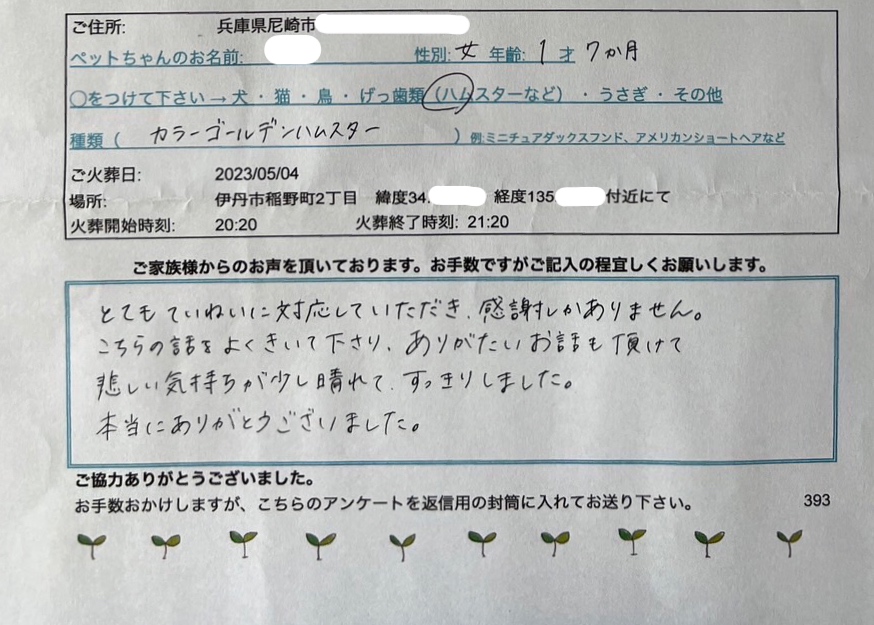 ご住所: 兵庫県尼崎市
ペットちゃんのお名前: 性別: 女 年齢: 1 才 7か月
○をつけて下さい→犬・猫・鳥・げっ歯類(ハムスターなど)・うさぎ・その他
種類( カラーゴールデンハムスター ) 例:ミニチュアダックスフンド、アメリカンショートヘアなど
ご火葬日: 2023/05/04
場所: 伊丹市稲野町2丁目 緯度34. 経度135 付近にて
火葬開始時刻: 20:20 火葬終了時刻: 21:20
ご家族様からのお声を頂いております。お手数ですがご記入の程宜しくお願いします。
とてもていねいに対応していただき、感謝しかありません。
こちらの話をよくきいて下さり、ありがたいお話も頂けて
悲しい気持ちが少し晴れて、すっきりしました。
本当にありがとうございました。
ご協力ありがとうございました。
お手数おかけしますが、こちらのアンケートを返信用の封筒に入れてお送り下さい。 393